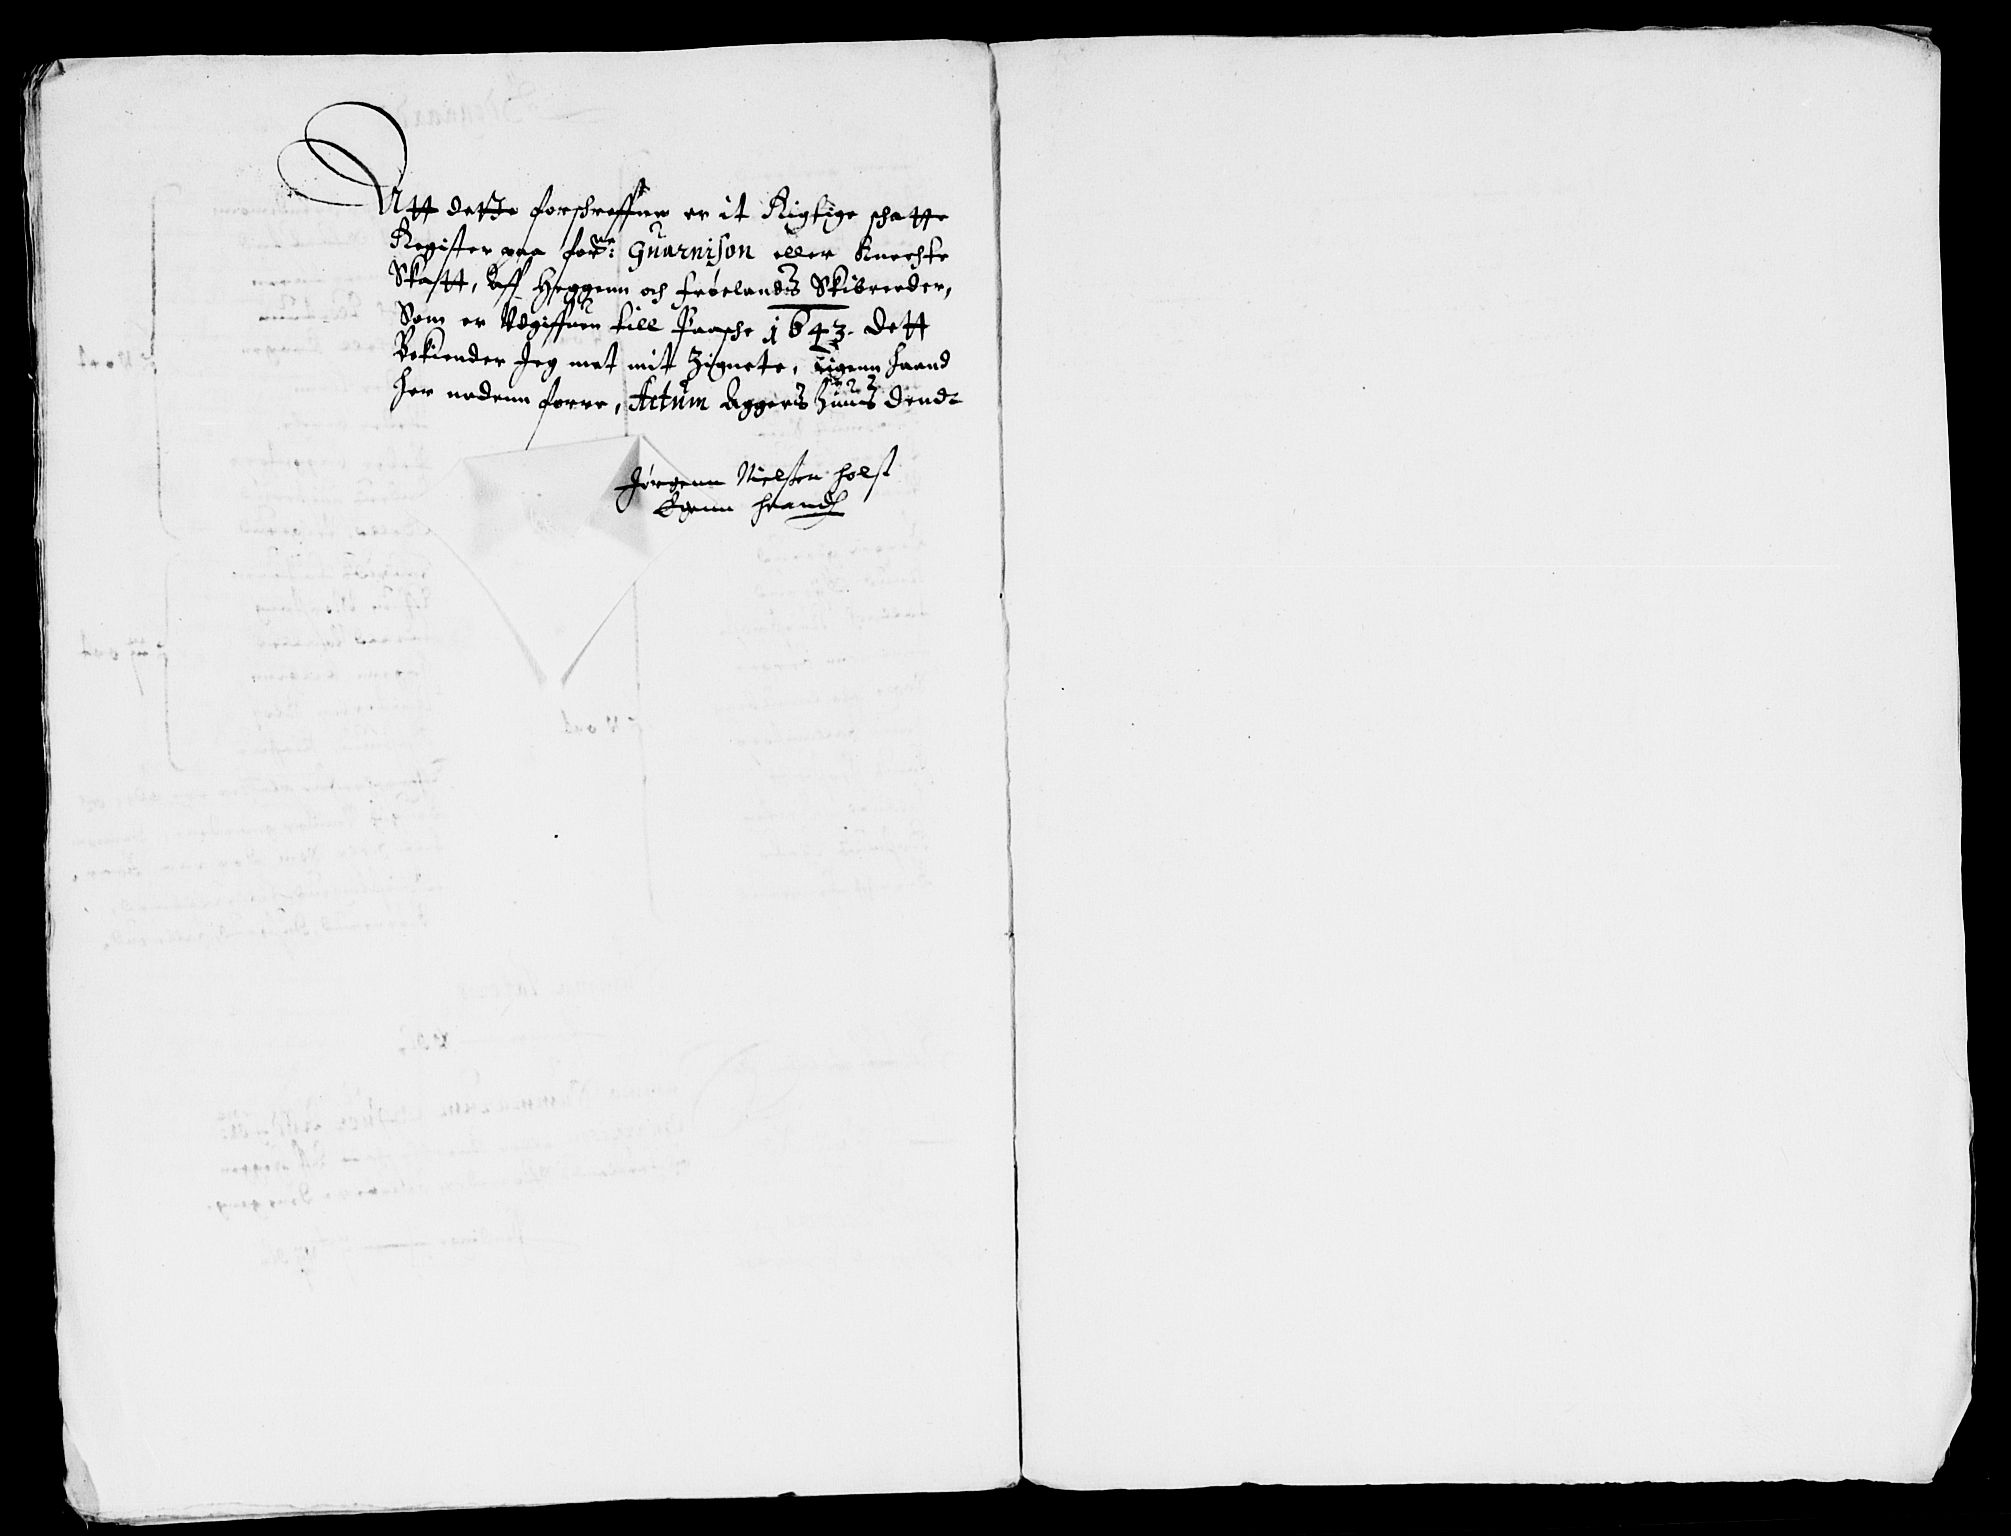 Att dette forschreffne er it Rigtige schatte
Register paa forne: Guarnison eller Knechte
Skatt, Aff Heggenn och Frøelands Skibreeder,
Som er Udgiffuen till Paasche 1643. Dett
Bekiender Jeg met mit Zignete, Eigenn haand
her nedenn forre, Actum Aggers Huus Dend
Jørgenn Nielsen Holst
Egenn haand